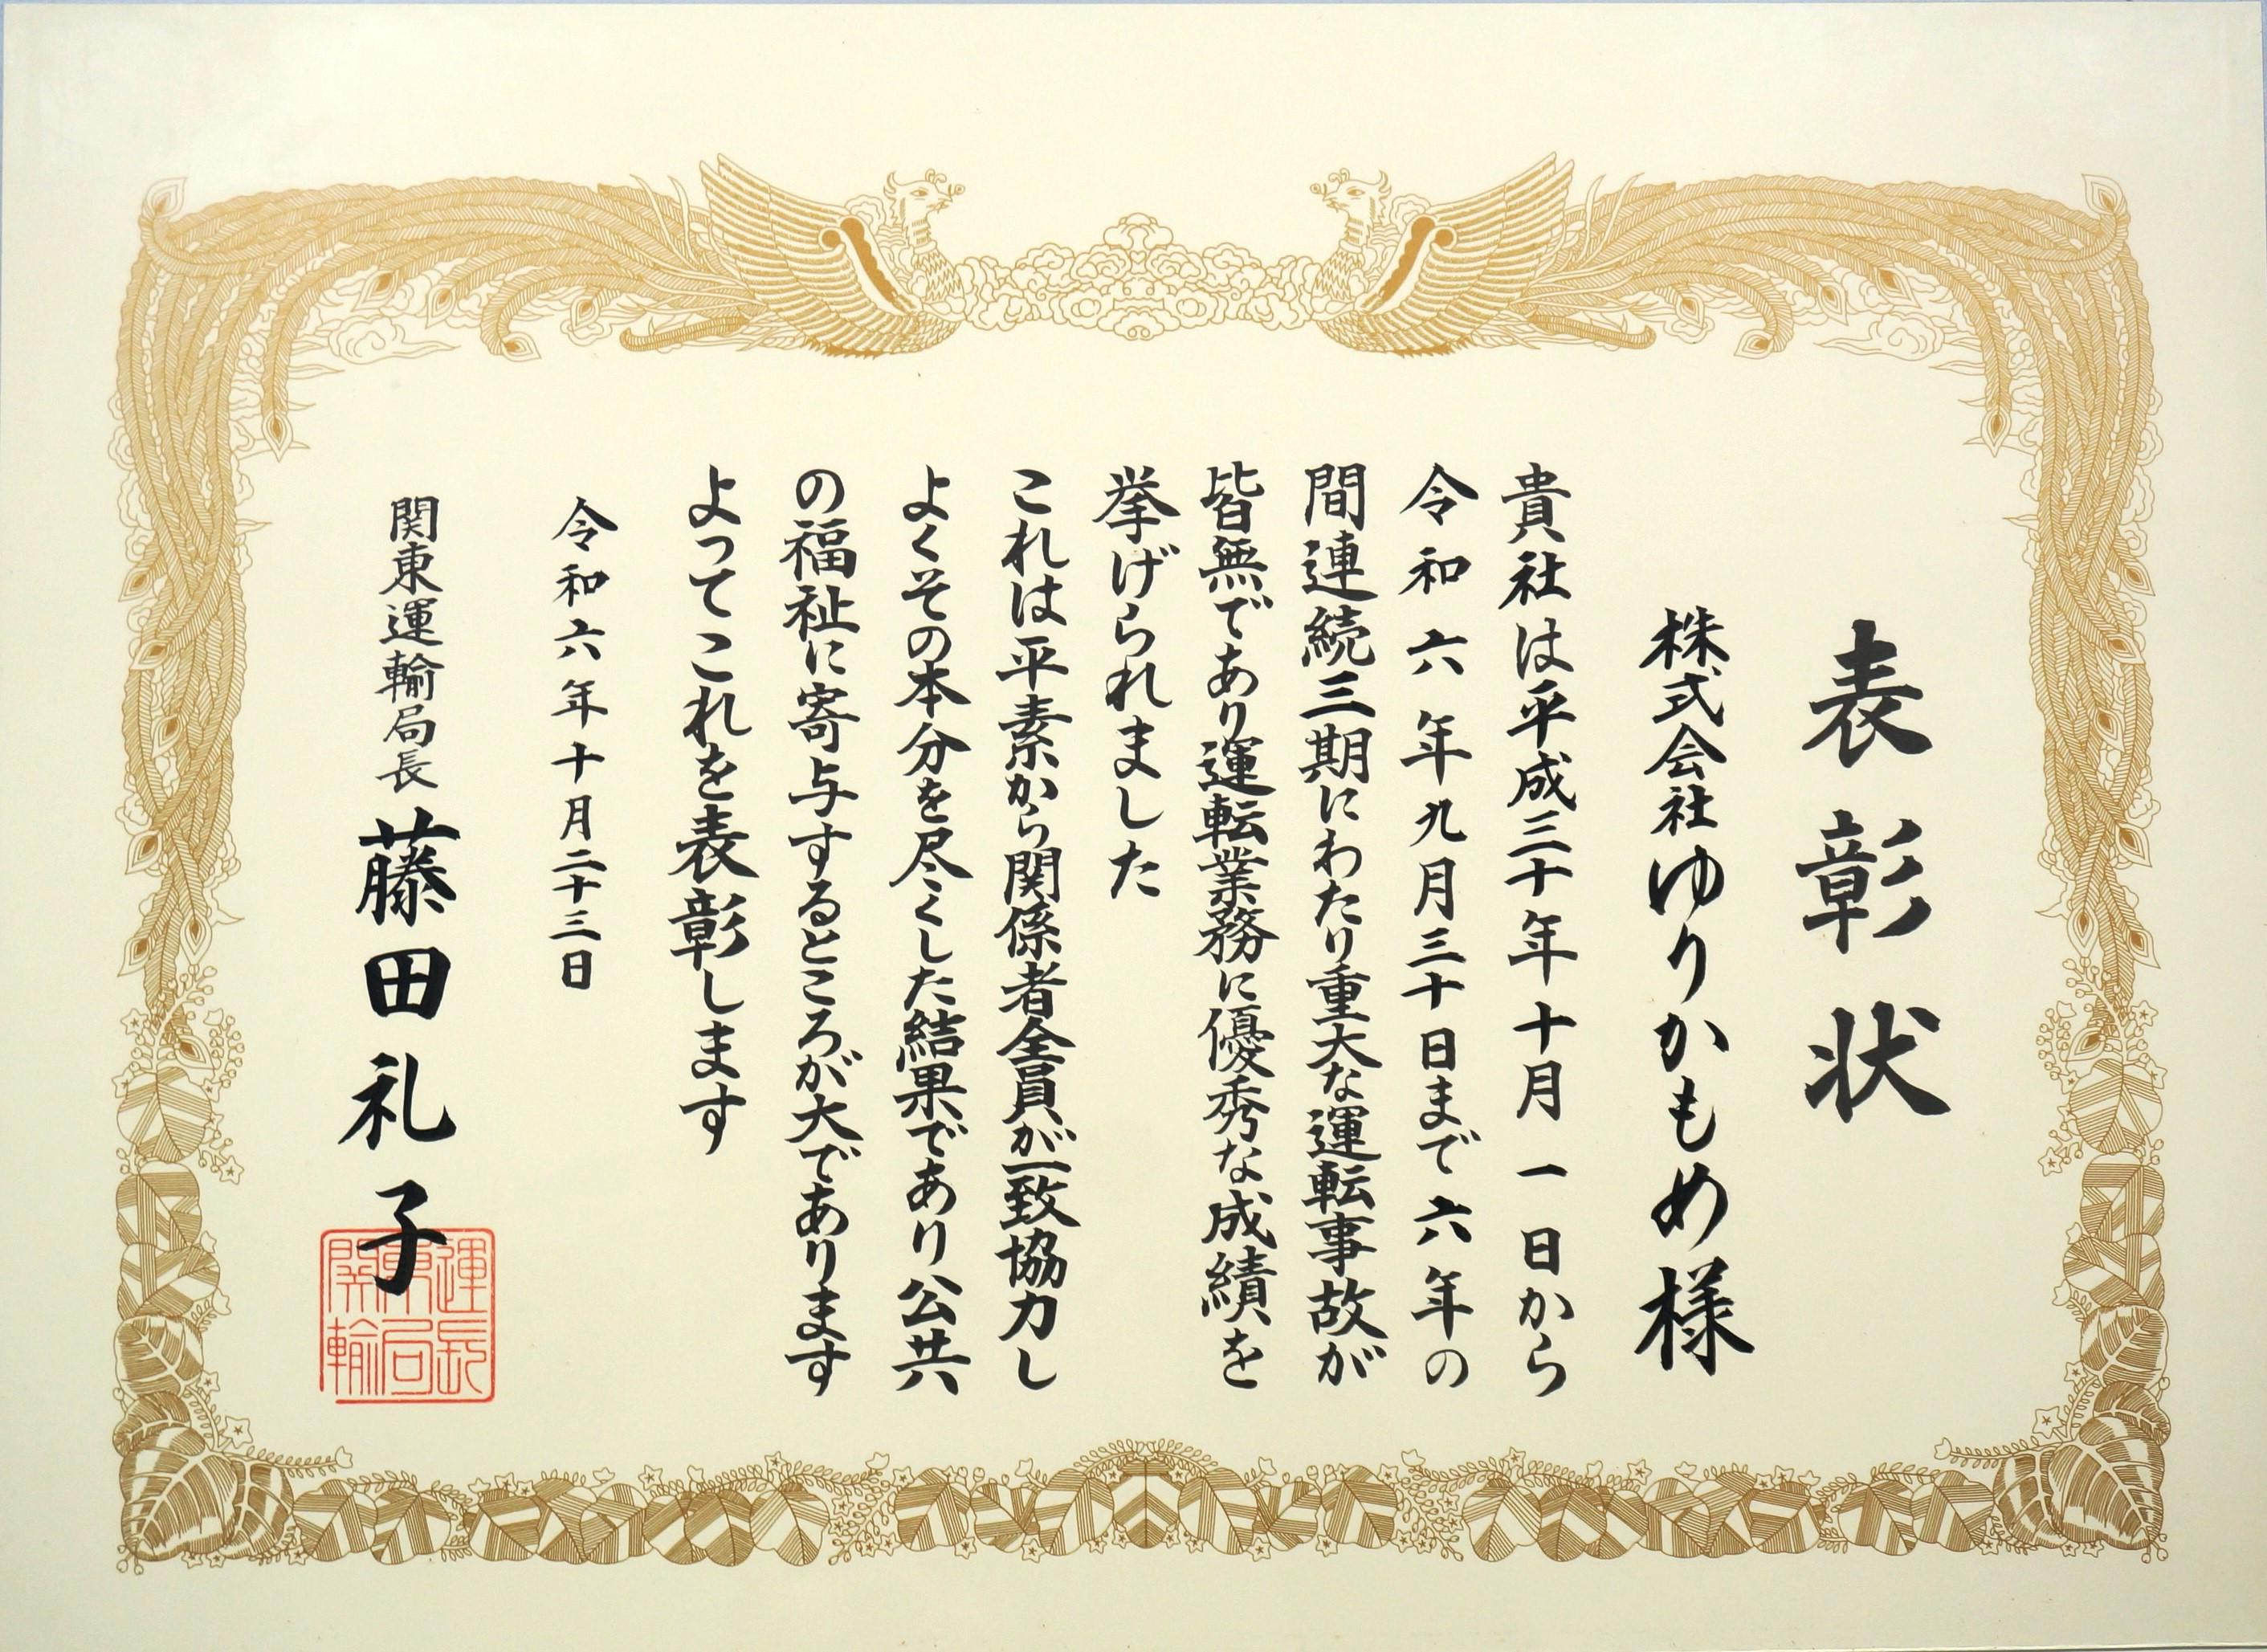 表彰状
株式会社ゆりかもめ様
貴社は平成三十年十月一日から
令和六年九月三十日まで六年の
間連続三期にわたり重大な運転事故が
皆無であり運転業務に優秀な成績を
挙げられました
これは平素から関係者全員が一致協力し
よくその本分を尽くした結果であり公共
の福祉に寄与するところが大であります
よってこれを表彰します
令和六年十月二十三日
関東運輸局長 藤田礼子
関東運
輸局長